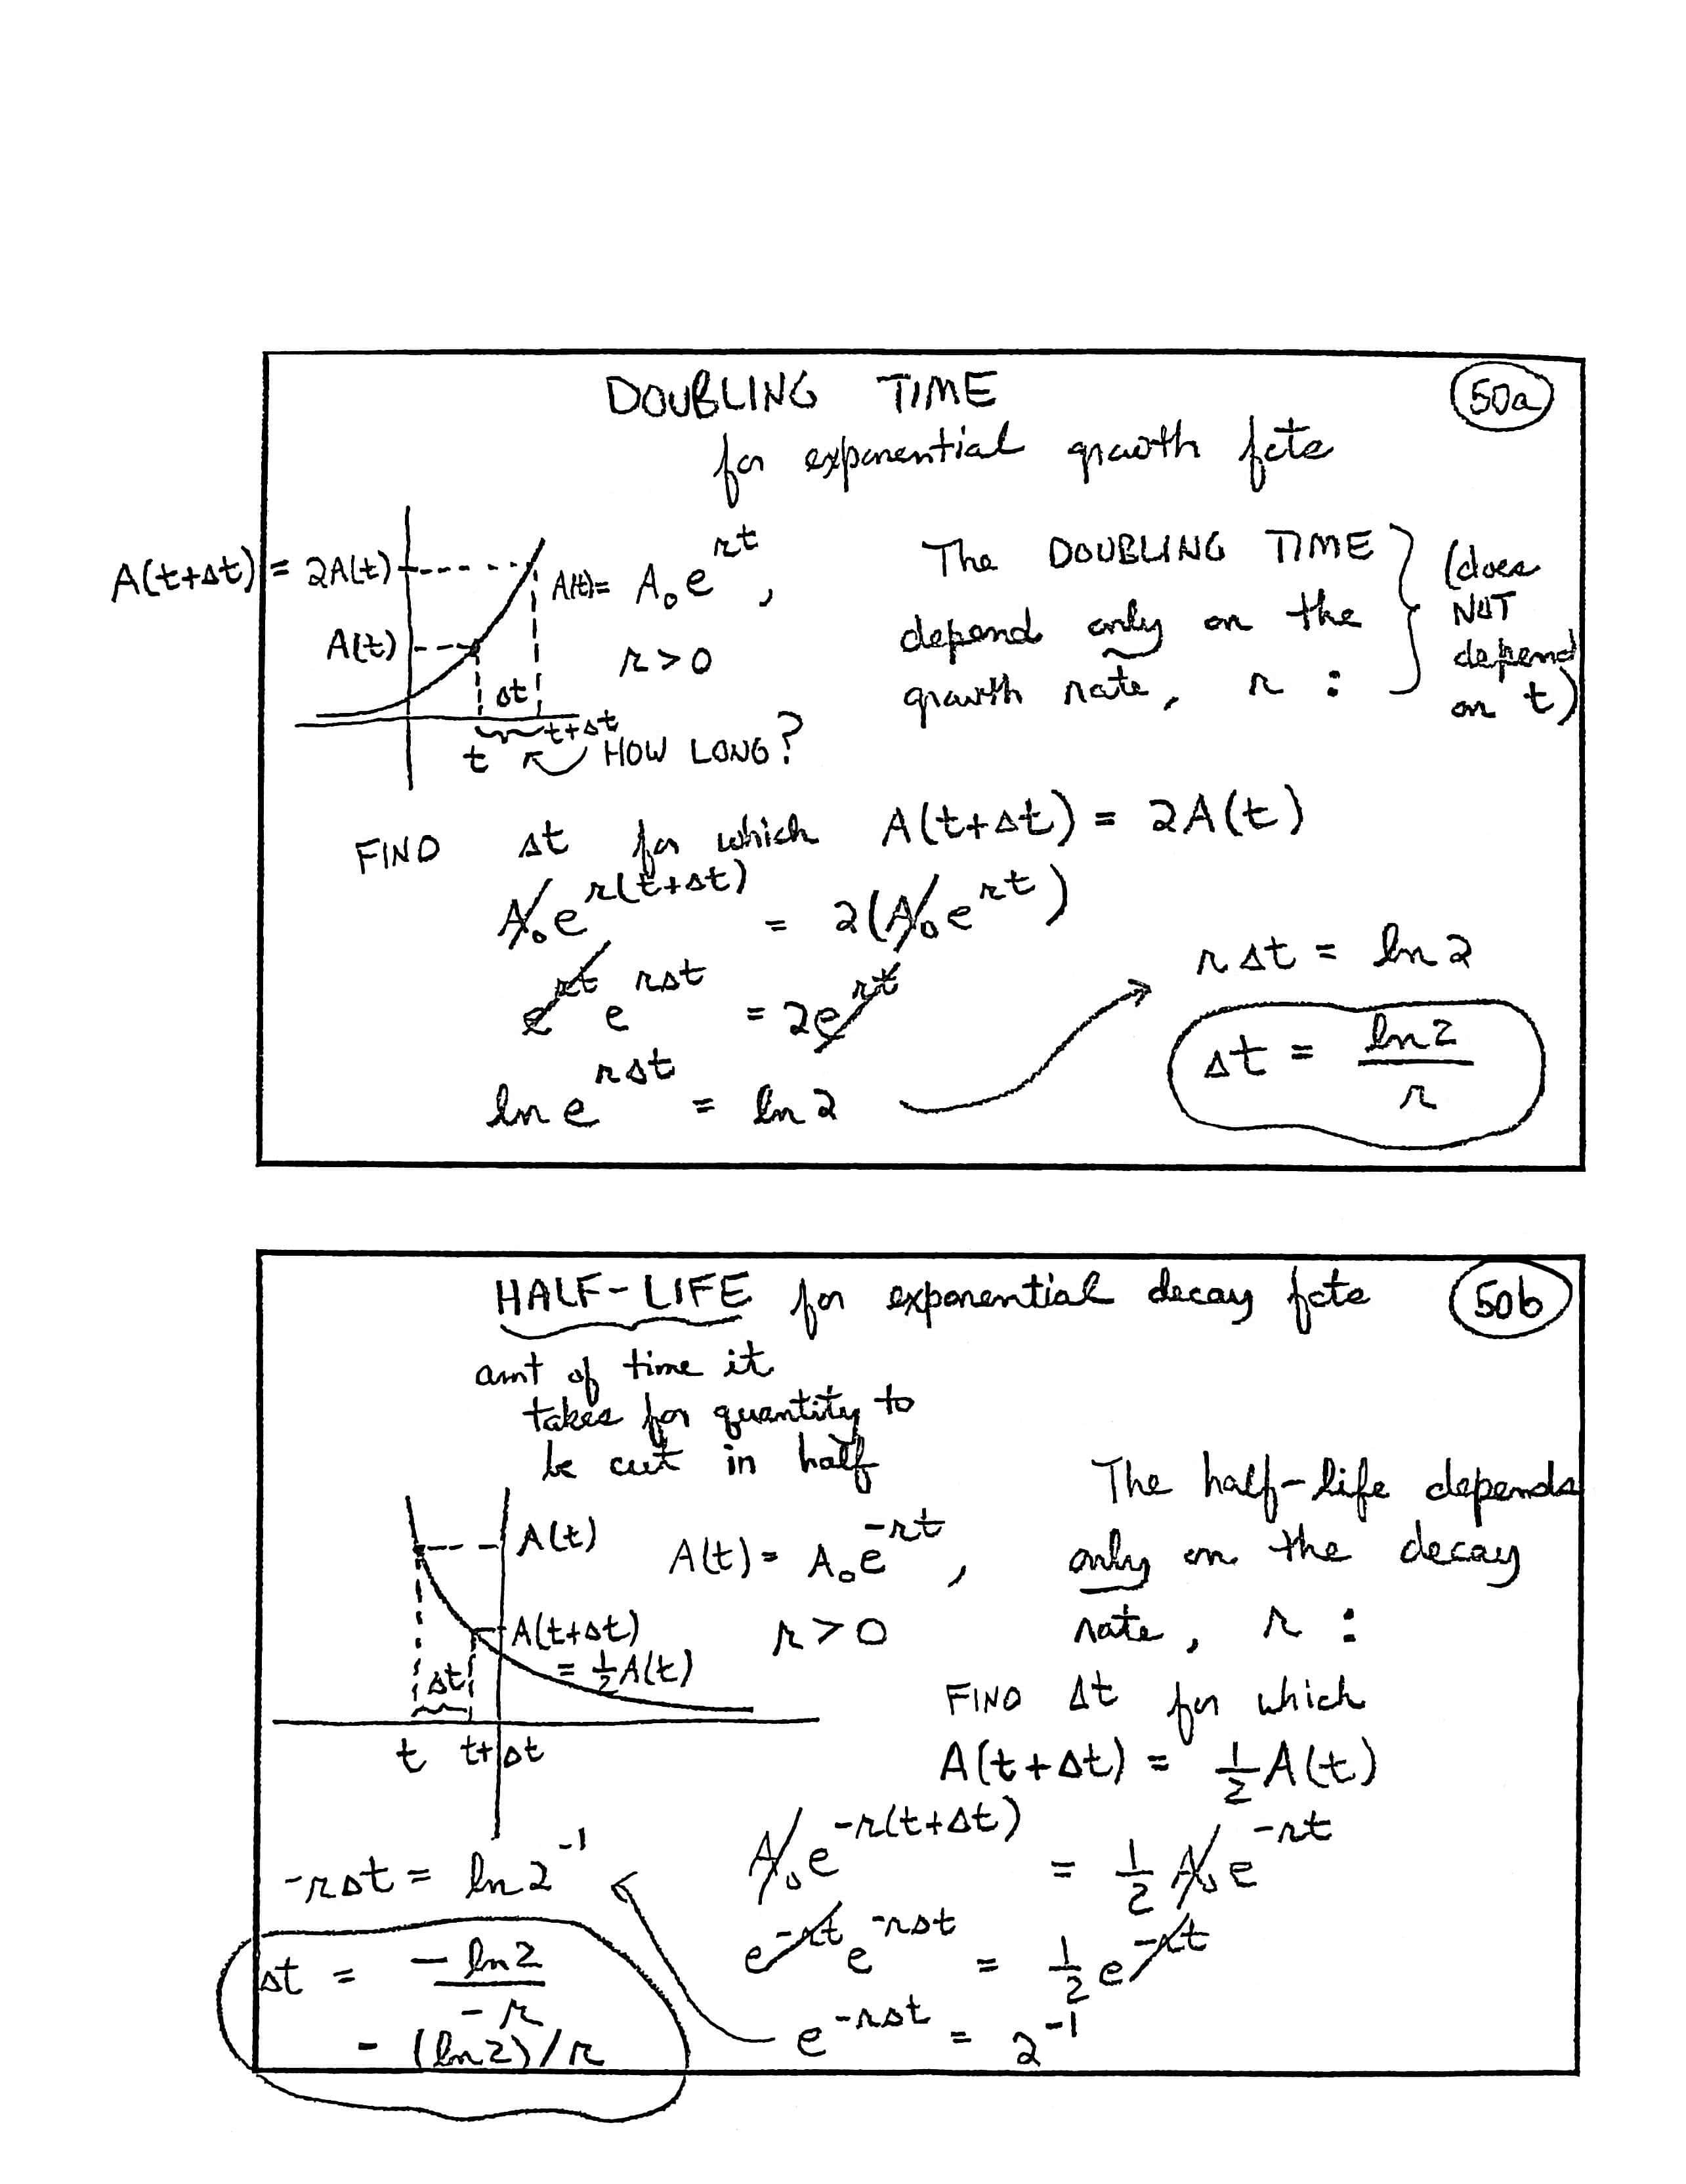 DOUBLING TIME
50a
for exponential growth fcts
A(t+Δt) = 2A(t)
A(t)
A(t)= A₀e^{rt},
r > 0
Δt
t
t+Δt
HOW LONG?
The DOUBLING TIME
depend only on the
growth rate, r :
(does
NOT
depend
on t)
FIND Δt for which A(t+Δt) = 2A(t)
A₀e^{r(t+Δt)} = 2(A₀e^{rt})
e^{rt} e^{rΔt} = 2e^{rt}
ln e^{rΔt} = ln 2
rΔt = ln 2
Δt = \frac{ln 2}{r}
HALF-LIFE for exponential decay fcts
50b
amt of time it
takes for quantity to
be cut in half
A(t)
A(t+Δt)
= ½A(t)
Δt
t
t+Δt
A(t) = A₀e^{-rt},
r > 0
The half-life depends
only on the decay
rate, r :
FIND Δt for which
A(t+Δt) = ½A(t)
A₀e^{-r(t+Δt)} = ½ A₀e^{-rt}
e^{-rt} e^{-rΔt} = ½ e^{-rt}
e^{-rΔt} = 2^{-1}
-rΔt = ln 2^{-1}
Δt = \frac{-ln 2}{-r}
= (ln 2)/r